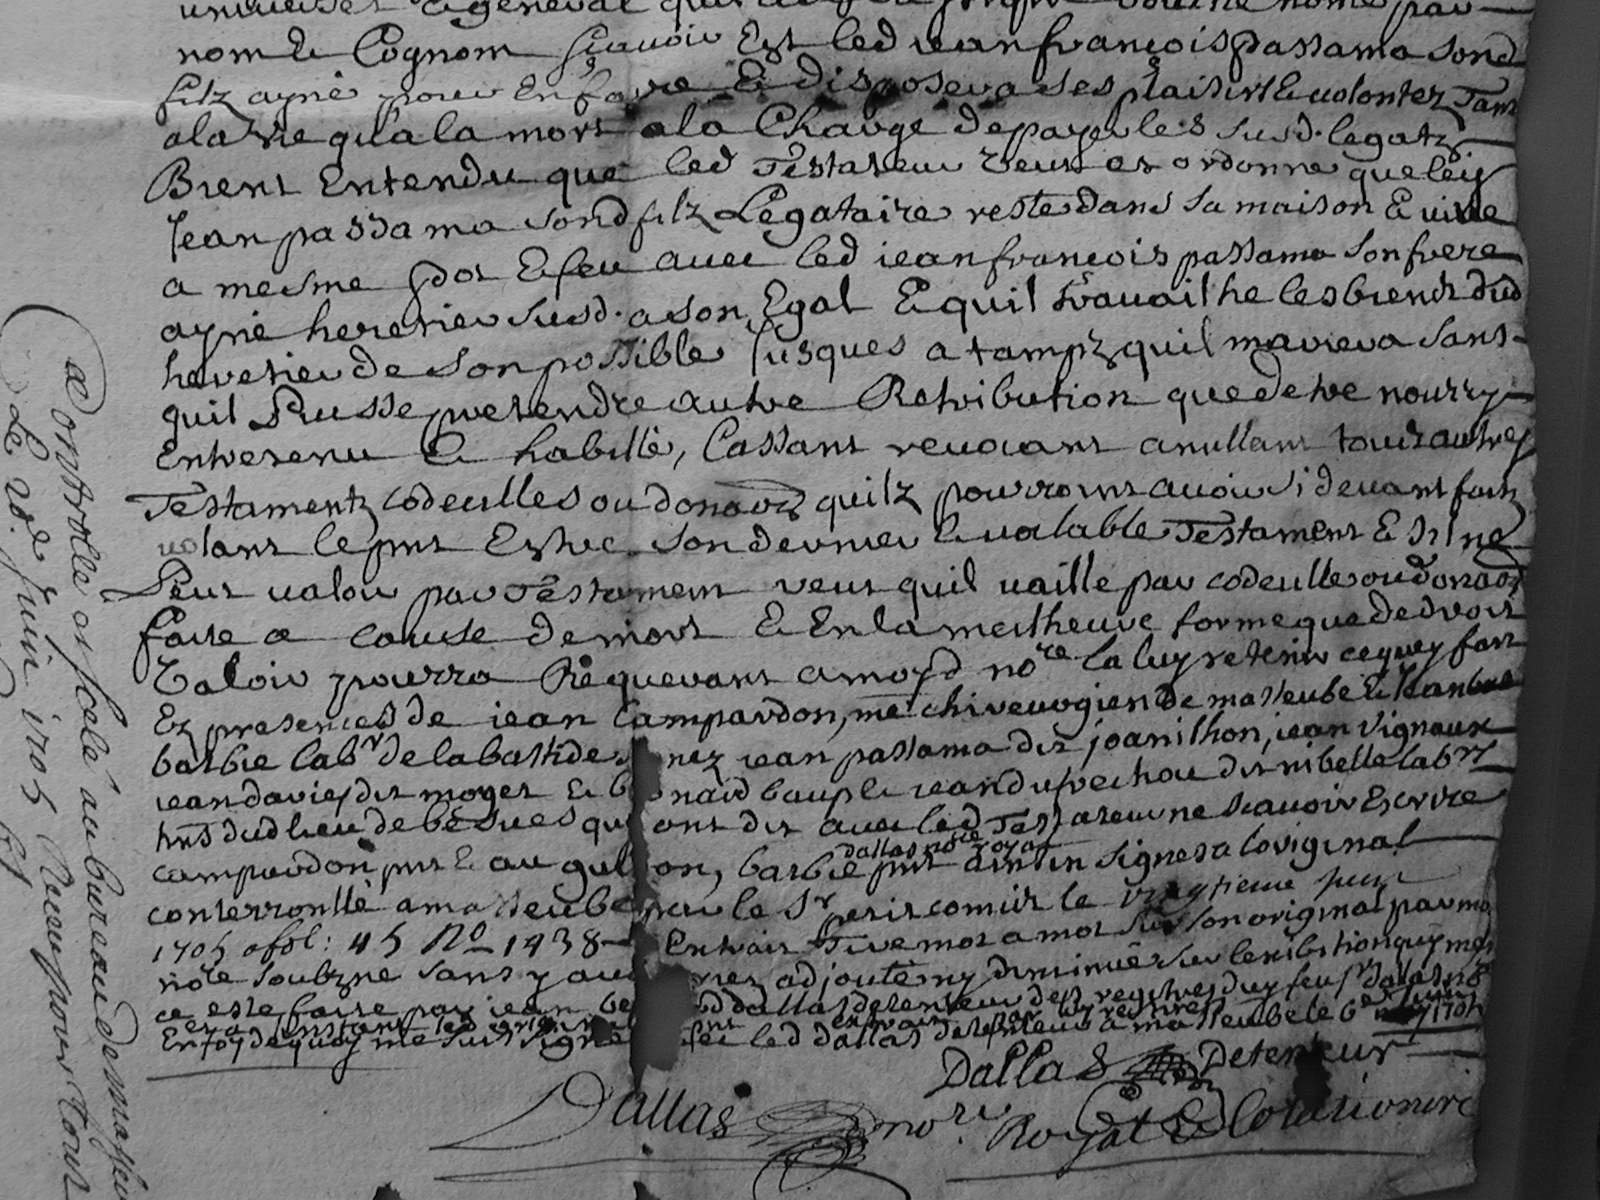 universel & general
nom & Cognom scavoir Est led jean françois passama sond
filz ayné pour En faire & disposer a ses plaisirs & volontez Tant
a la vie qu'a la mort a la Charge de payer les susd. legatz
Bient Entendu que led Testateur veut et ordonne que
Jean passama sond filz Legataire reste dans sa maison & vive
a mesme pot & feu avec led jean françois passama son frere
ayné heretier susd. a son Egal & quil travailhe les biens dud
heretier de son possible Jusques a tampz quil mariera sans
quil Puisse pretendre autre Retribution que detre nourry
Entretenu & habillé, Cassant revocant anullant toutz autres
Testamentz codecilles ou donaons quilz pourroint avoir si devant faitz
volant le pnt Estre son dernier & valable Testament & sil ne
Peut valoir par Testament veut quil vaille par codecille ou donaon
faite a cause de mort & En la meilheure forme que de droit
Valoir pourra Requerant a moyd nore la luy retenir ce quey fait
Ez presences de jean Campardon, me chireurgien de masseube &
barbie labr de la bastide jean passama dit joanilhon, jean vignaux
jean davies dit moget & bernard baup & jean dit nibelle labrs
dud lieu de besues qui ont dit avec led Testateur ne scavoir Escrire
campardon pnt & au
dallas nore royal
barbie pnt signes a loriginal
conterrollé a masseube par le Sr petit comis le vingtieme juin
1705 offol: 45 No 1438 Extrait Tire mot a mot sur son original par moy
nore soubzne sans y avoir adjouté ny diminué sur lexibition quy men
a este faite par jean dallas detenteur des registres du feu sr dalas nore
En foy de quoy me suis signé avec led dallas detenteur a masseube le 1705
Dallas Detenteur
Dallas nore Royal & Colationnre
Controllé et scelé au bureau de masseube
Le 20e Juin 1705 Receu pour tout